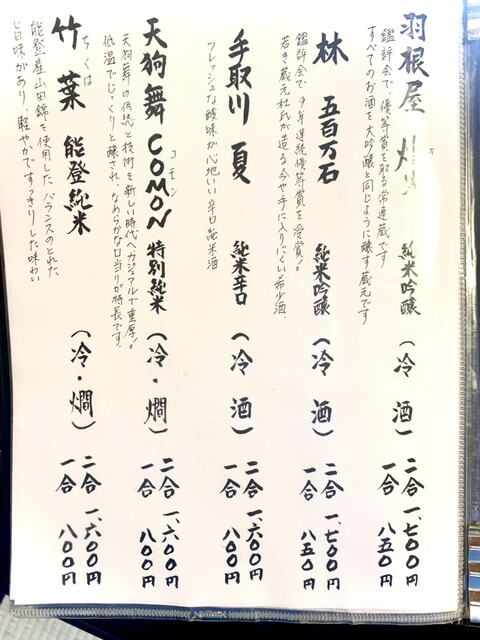 羽根屋 純米吟醸 (冷酒) 二合 一、七〇〇円
一合 八五〇円
鑑評会で、優等賞を取る常連蔵です
すべてのお酒を大吟醸と同じように醸す蔵元です
林 五百万石 純米吟醸 (冷酒) 二合 一、七〇〇円
一合 八五〇円
鑑評会で9年連続優等賞を受賞!。
若き蔵元杜氏が造る今や手に入りにくい希少酒.
手取川 夏 純米辛口 (冷酒) 二合 一、六〇〇円
一合 八〇〇円
フレッシュな酸味が心地いい辛口純米酒
天狗舞 COMON 特別純米 (冷・燗) 二合 一、六〇〇円
コモン
一合 八〇〇円
天狗舞の伝統と技術を新しい時代へカジアルで重厚!。
低温でじっくりと醸され、なめらかな口当りが特長です.
竹葉 能登純米 (冷・燗) 二合 一、六〇〇円
ちくは
一合 八〇〇円
能登産山田錦を使用した、バランスのとれた
旨味があり、軽やかですっきりした味わい